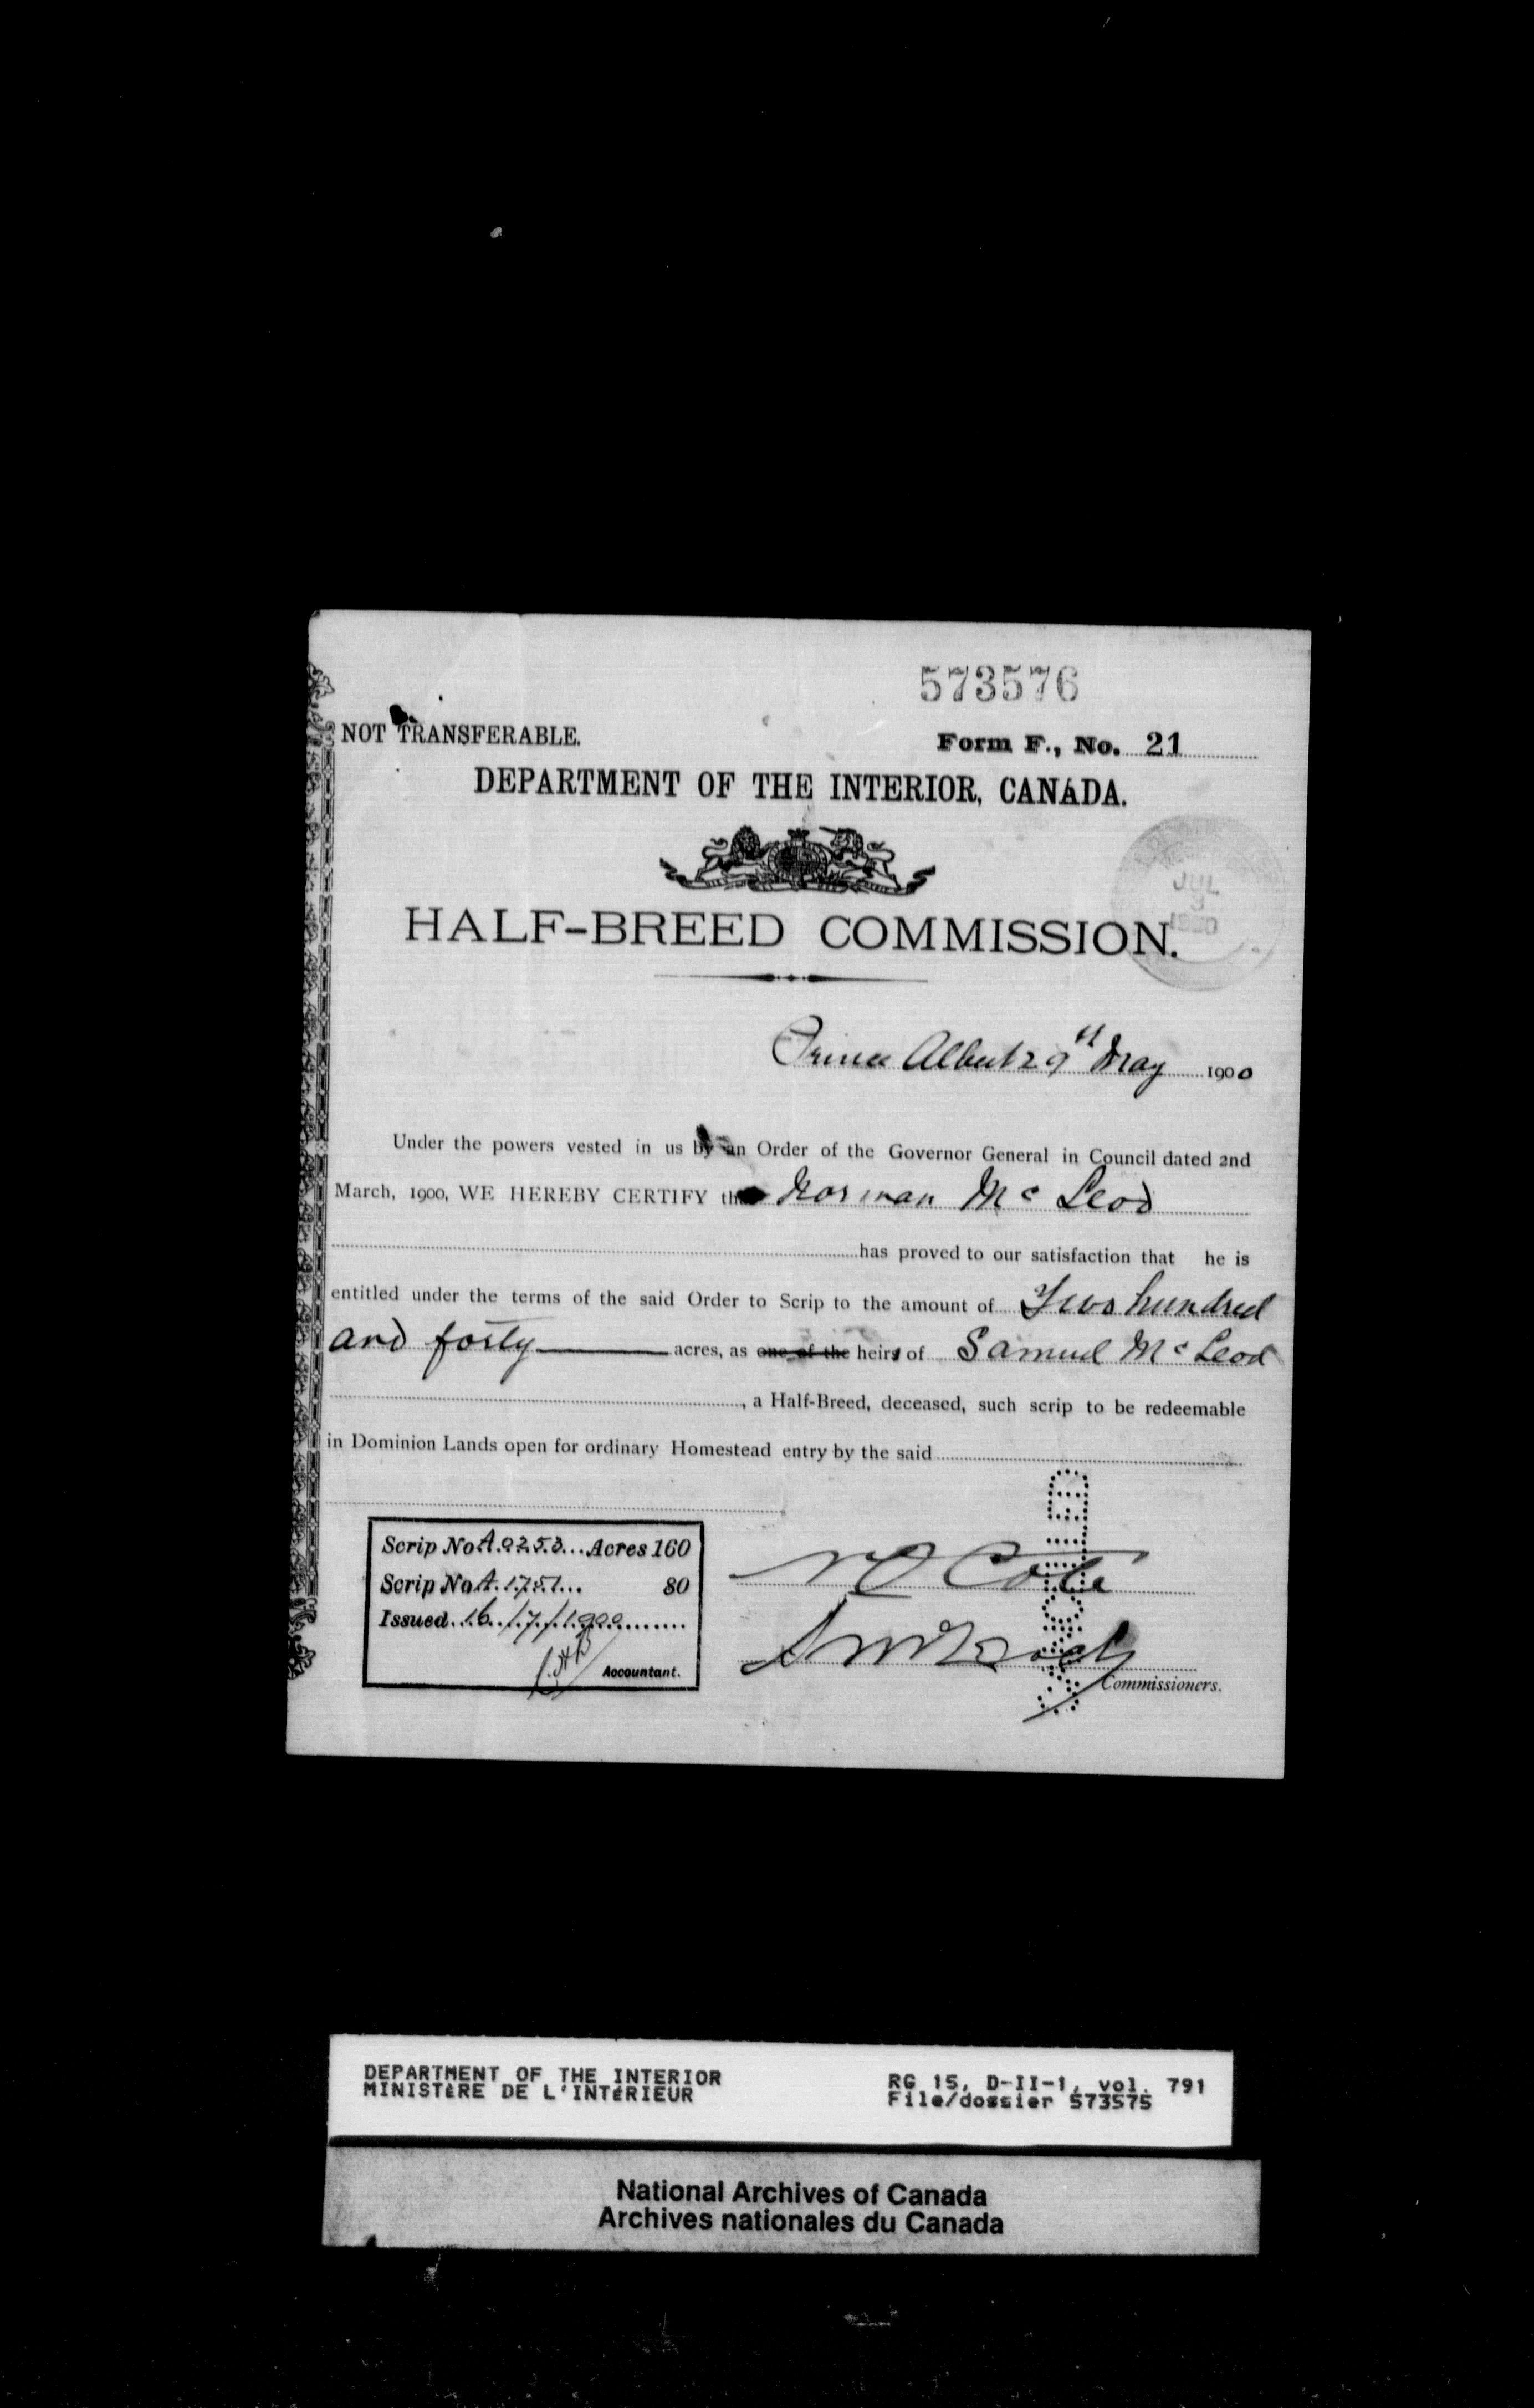 573576
NOT TRANSFERABLE.
Form F., No. 21
DEPARTMENT OF THE INTERIOR, CANADA.
JUL
3
1900
HALF-BREED COMMISSION.
Prince Albert 29th May 1900
Under the powers vested in us by an Order of the Governor General in Council dated 2nd
March, 1900, WE HEREBY CERTIFY that Norman Mc Leod
has proved to our satisfaction that he is
entitled under the terms of the said Order to Scrip to the amount of Two hundred
and forty acres, as one of the heirs of Samuel Mc Leod
, a Half-Breed, deceased, such scrip to be redeemable
in Dominion Lands open for ordinary Homestead entry by the said
Scrip No A.0253... Acres 160
Scrip No A.1751... 80
Issued.16./7./1900
Accountant.
N O Cote
Commissioners.
DEPARTMENT OF THE INTERIOR
MINISTÈRE DE L'INTÉRIEUR
RG 15, D-II-1, vol. 791
File/dossier 573575
National Archives of Canada
Archives nationales du Canada